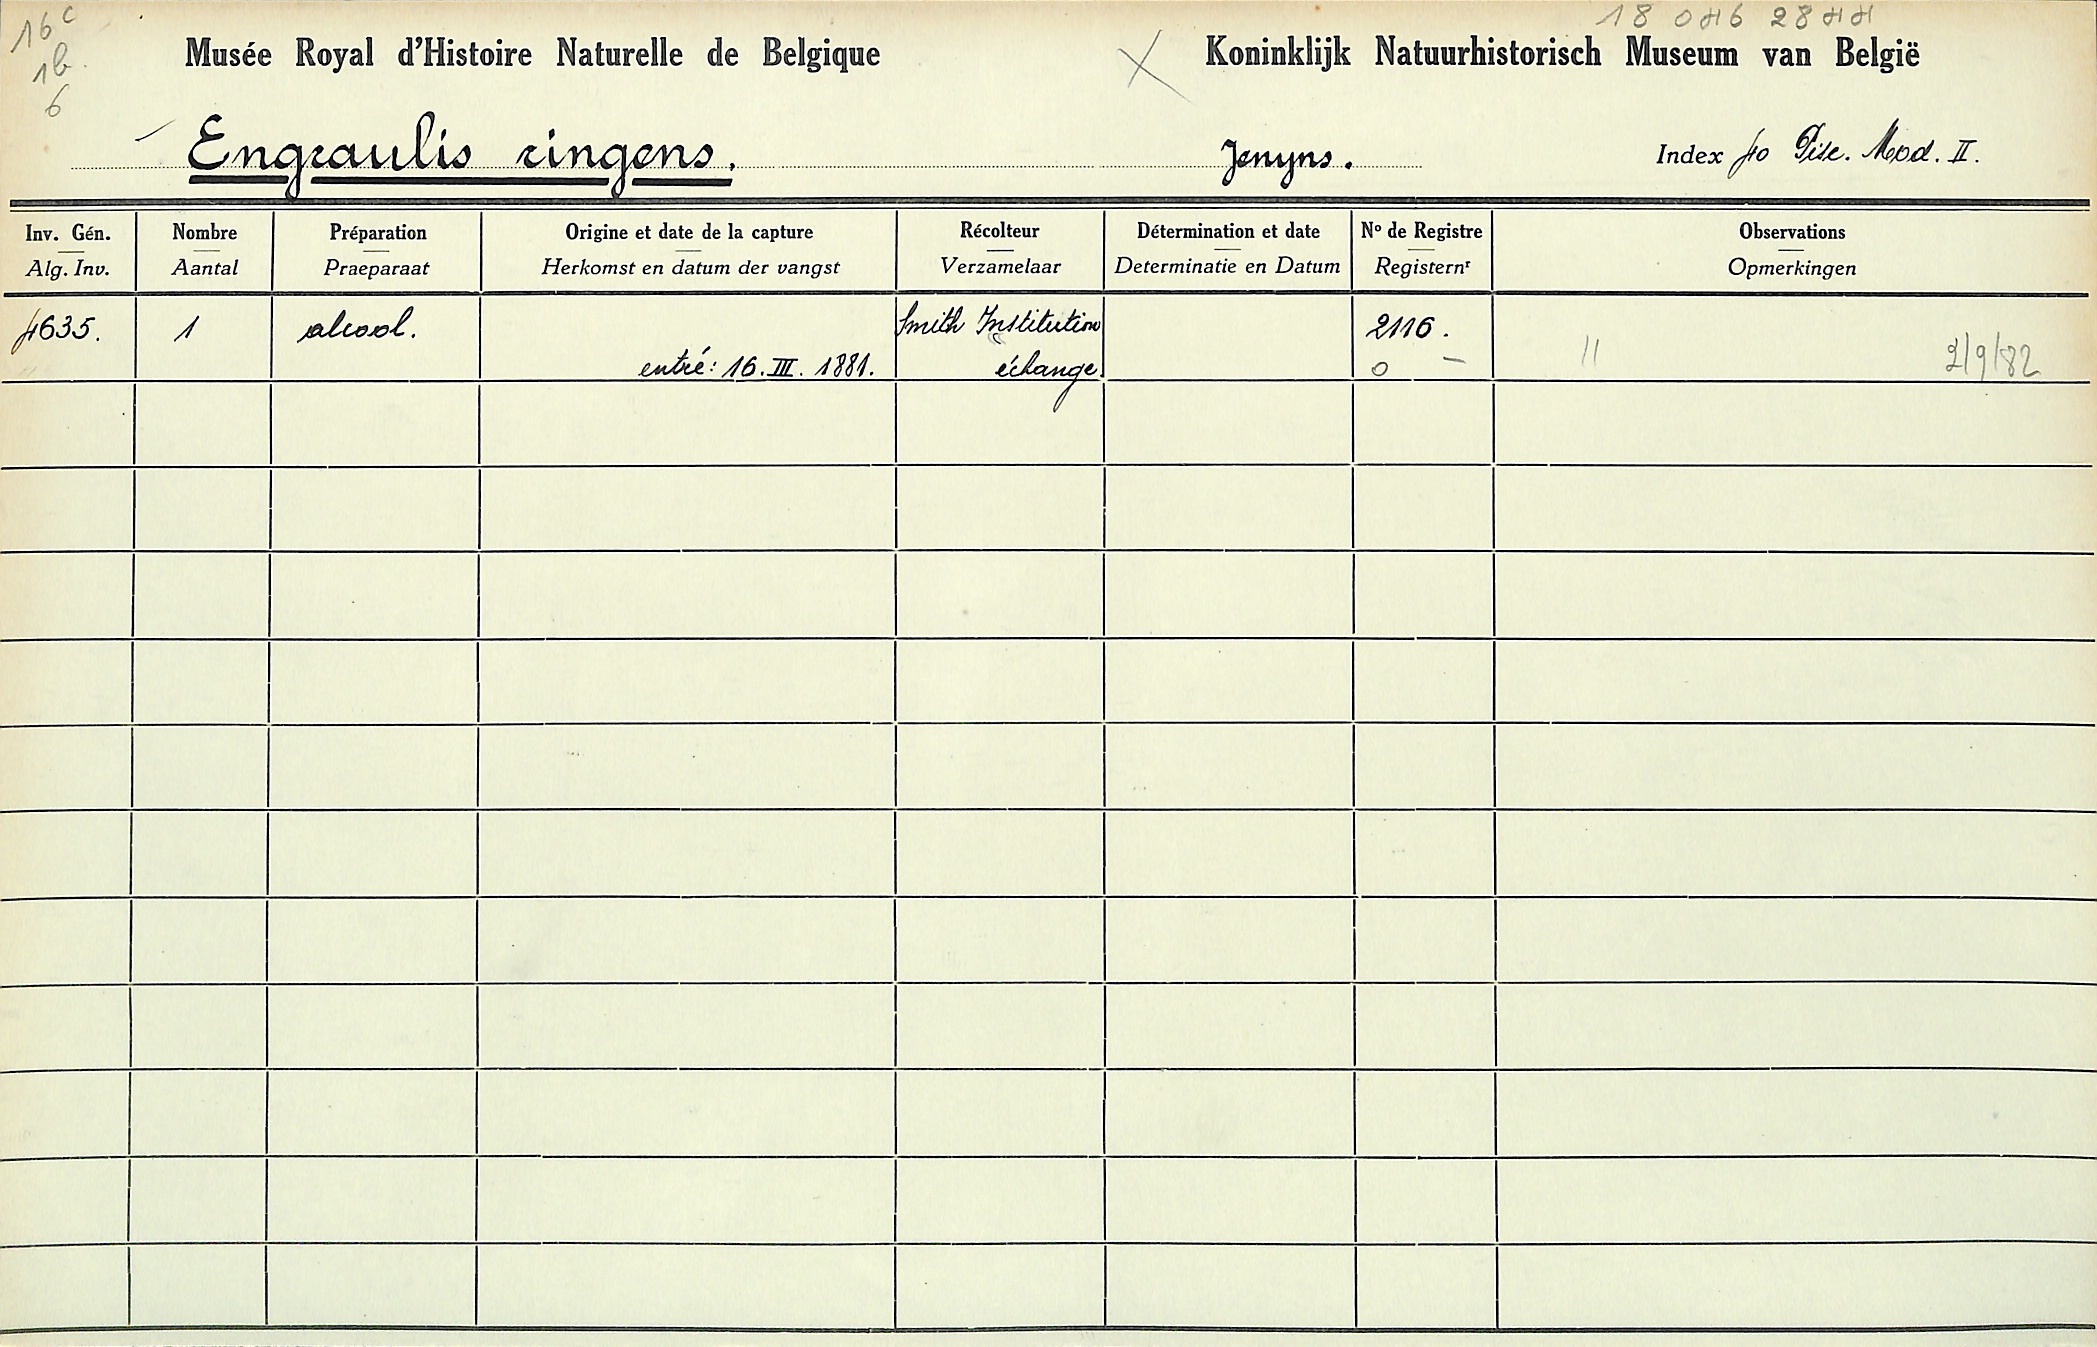 16c
1b.
6
18 046 2844
Musée Royal d'Histoire Naturelle de Belgique
Koninklijk Natuurhistorisch Museum van België
Engraulis ringens.
Jenyns.
Index 40 Pisc. Mod. II.
Inv. Gén. Nombre Préparation Origine et date de la capture Récolteur Détermination et date No de Registre Observations
Alg. Inv. Aantal Praeparaat Herkomst en datum der vangst Verzamelaar Determinatie en Datum Registernr Opmerkingen
4635. 1 alcool. Smith Institution 2116.
entré: 16. III. 1881. échange. 0 — 11 2/9/82